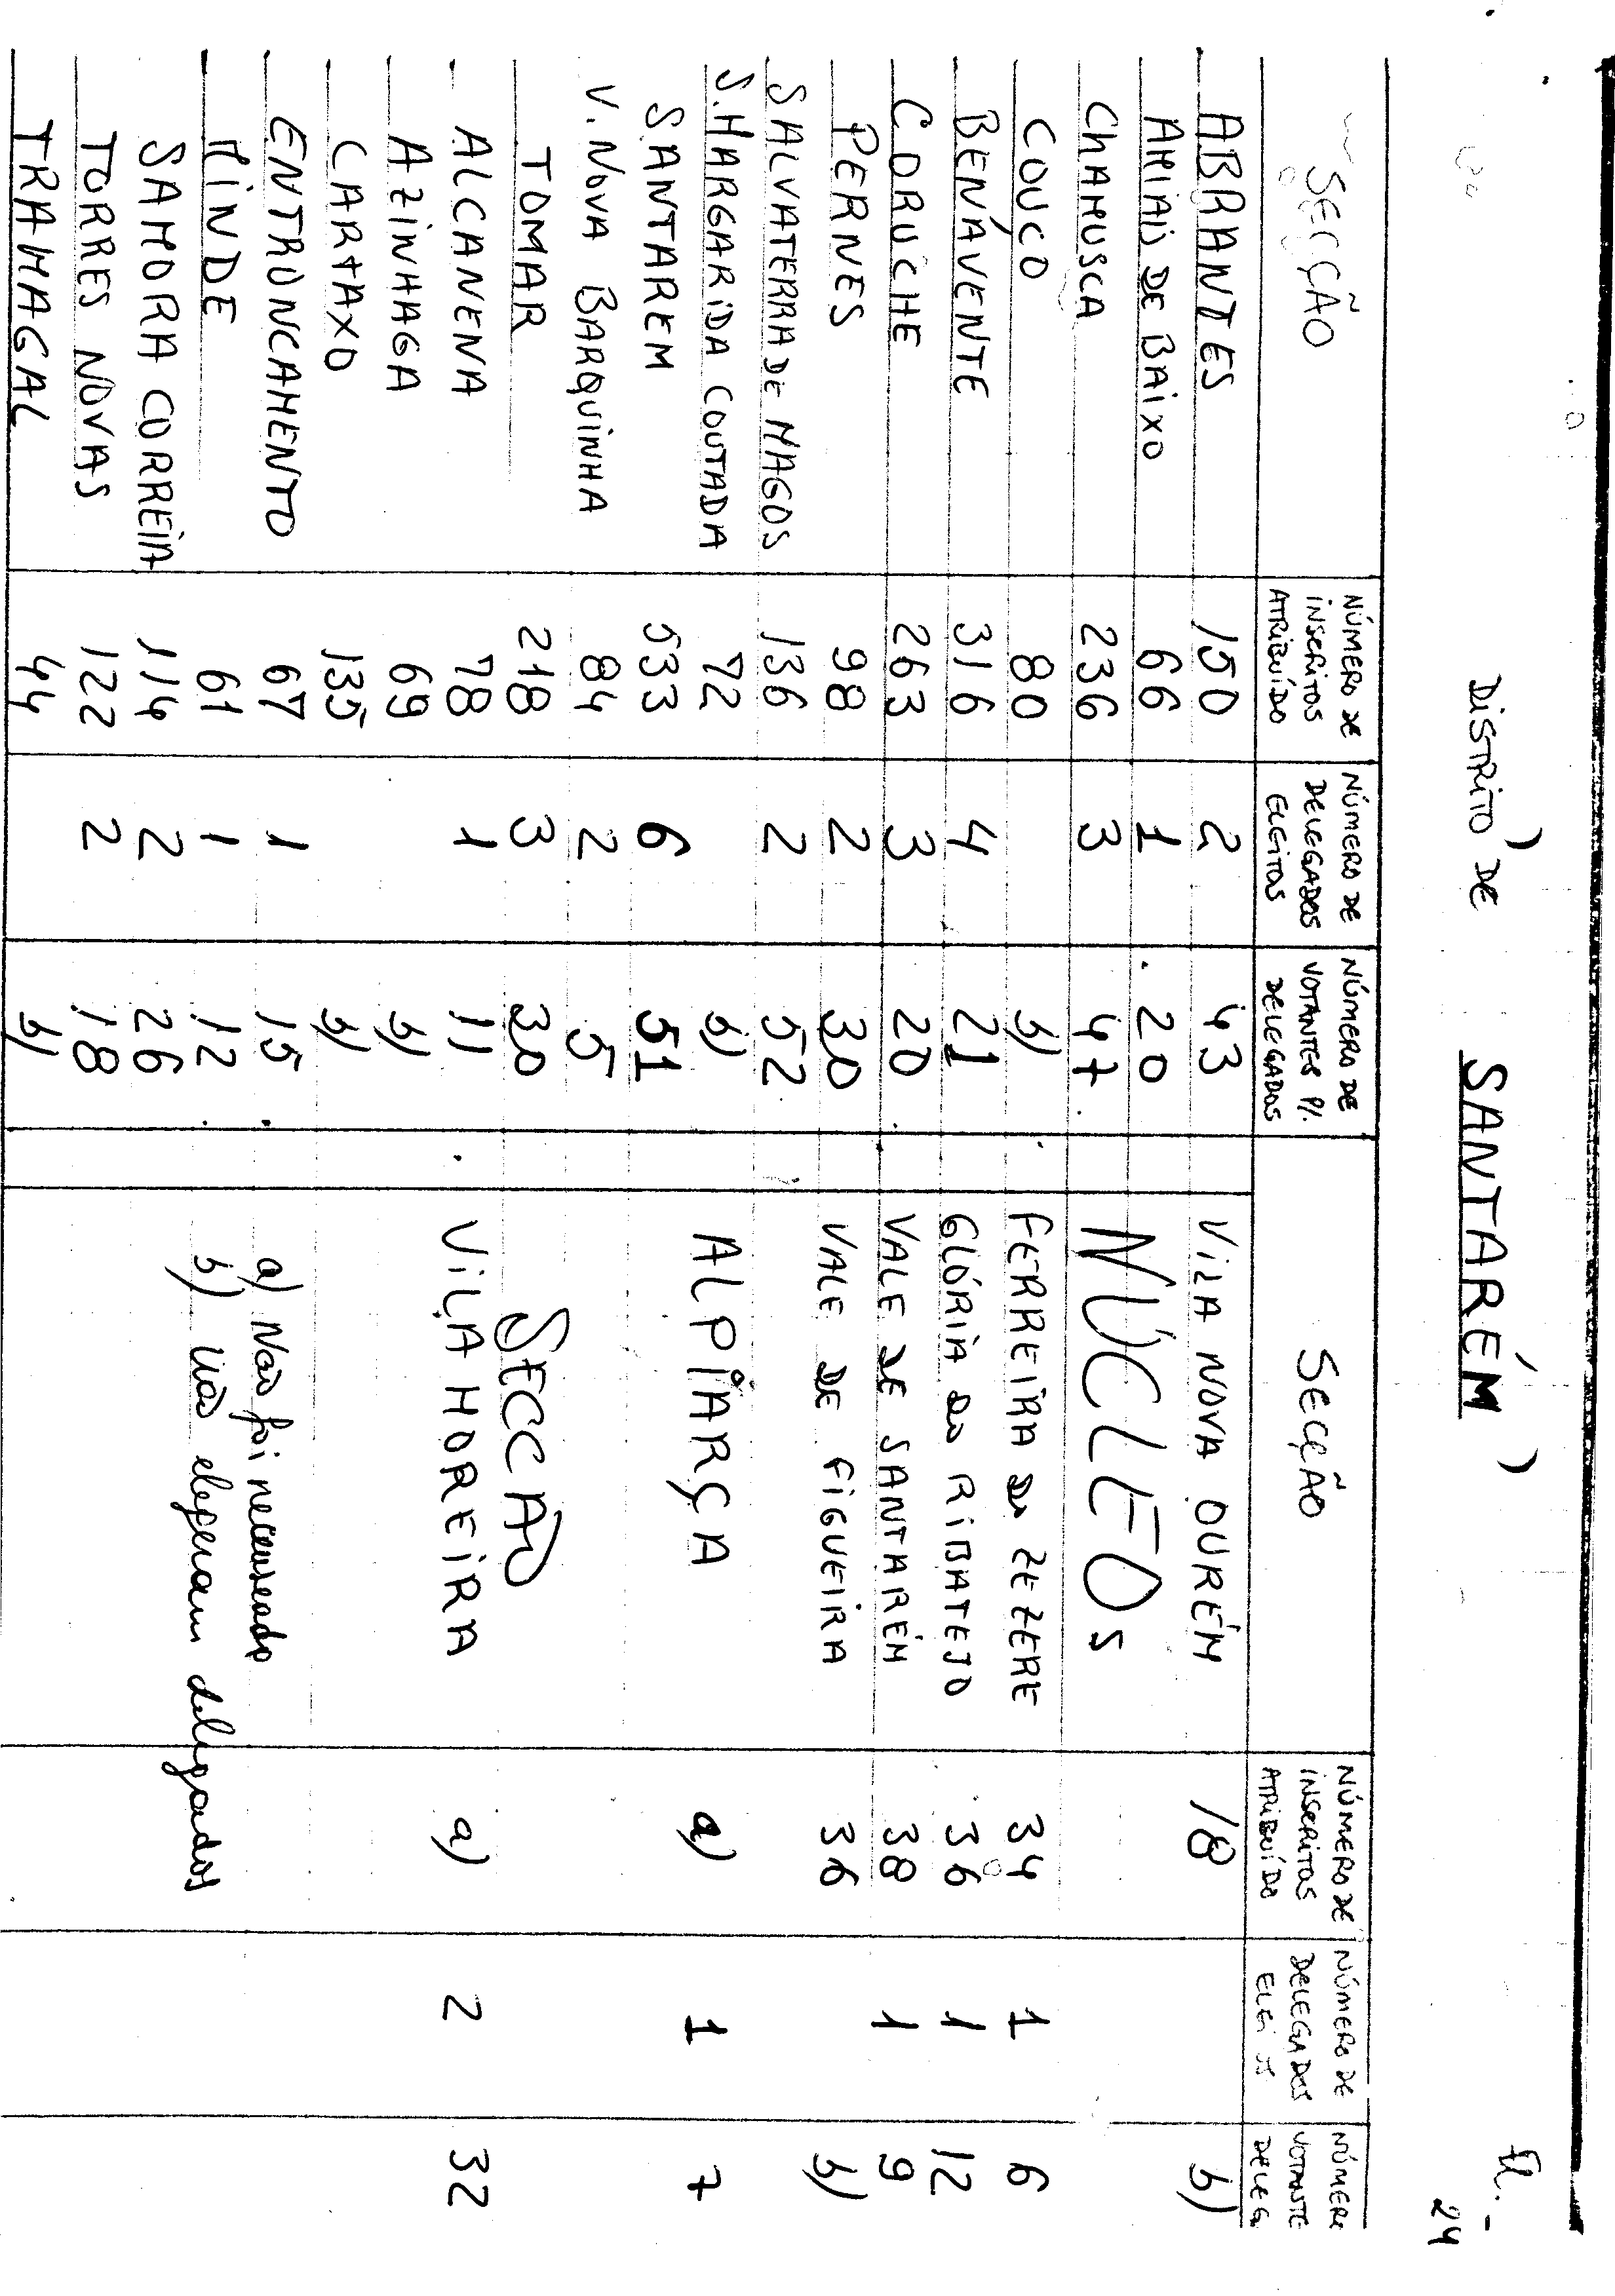 Fl. -
24
DISTRITO DE SANTARÉM
SECÇÃO | NÚMERO DE INSCRITOS ATRIBUÍDO | NÚMERO DE DELEGADOS ELEITOS | NÚMERO DE VOTANTES P/. DELEGADOS
ABRANTES 150 2 43
AMIAIS DE BAIXO 66 1 20
CHAMUSCA 236 3 47
COUÇO 80 b)
BENÁVENTE 316 4 21
CORUCHE 263 3 20
PERNES 98 2 30
SALVATERRA DE MAGOS 136 2 52
S. MARGARIDA COUTADA 72 b)
SANTAREM 533 6 51
V. NOVA BARQUINHA 84 2 5
TOMAR 218 3 30
ALCANENA 78 1 11
AZINHAGA 69 b)
CARTAXO 135 b)
ENTRONCAMENTO 67 1 15
MINDE 61 1 12
SAMORA CORREIA 114 2 26
TORRES NOVAS 122 2 18
TRAMAGAL 44 b)
SECÇÃO | NÚMERO DE INSCRITOS ATRIBUÍDO | NÚMERO DE DELEGADOS | NÚMER VOTANTE DELEG
VILA NOVA OURÉM 18 b)
NÚCLEOS
FERREIRA DO ZEZERE 34 1 6
GLÓRIA DO RIBATEJO 36 1 12
VALE DE SANTARÉM 38 1 9
VALE DE FIGUEIRA 36 b)
ALPIARÇA a) 1 7
SECÇÃO
VILA MOREIRA a) 2 32
a) Não foi recenseado
b) Não elegeram delegados